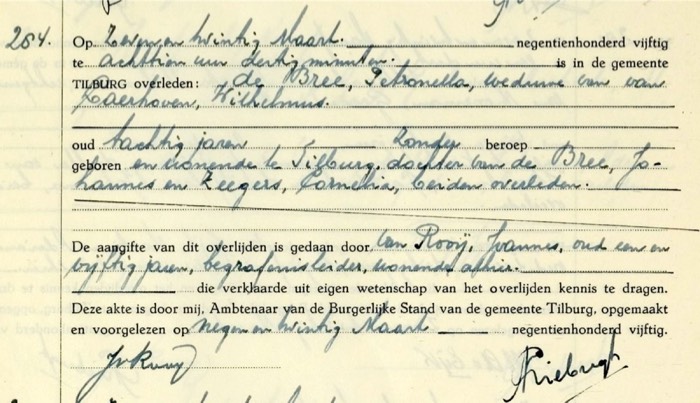 264.
Op Zeven en twintig Maart. negentienhonderd vijftig
te achttien uur dertig minuten. is in de gemeente
TILBURG overleden: de Bree, Petronella, weduwe van van
Laerhoven, Wilhelmus.
oud tachtig jaren Zonder beroep
geboren en wonende te Tilburg, dochter van de Bree, Jo-
hannes en Zeegers, Cornelia, beiden overleden.
De aangifte van dit overlijden is gedaan door van Rooij, Joannes, oud een en
vijftig jaren, begrafenisleider, wonende alhier.
die verklaarde uit eigen wetenschap van het overlijden kennis te dragen.
Deze akte is door mij, Ambtenaar van de Burgerlijke Stand van de gemeente Tilburg, opgemaakt
en voorgelezen op negen en twintig Maart negentienhonderd vijftig.
JvRooy